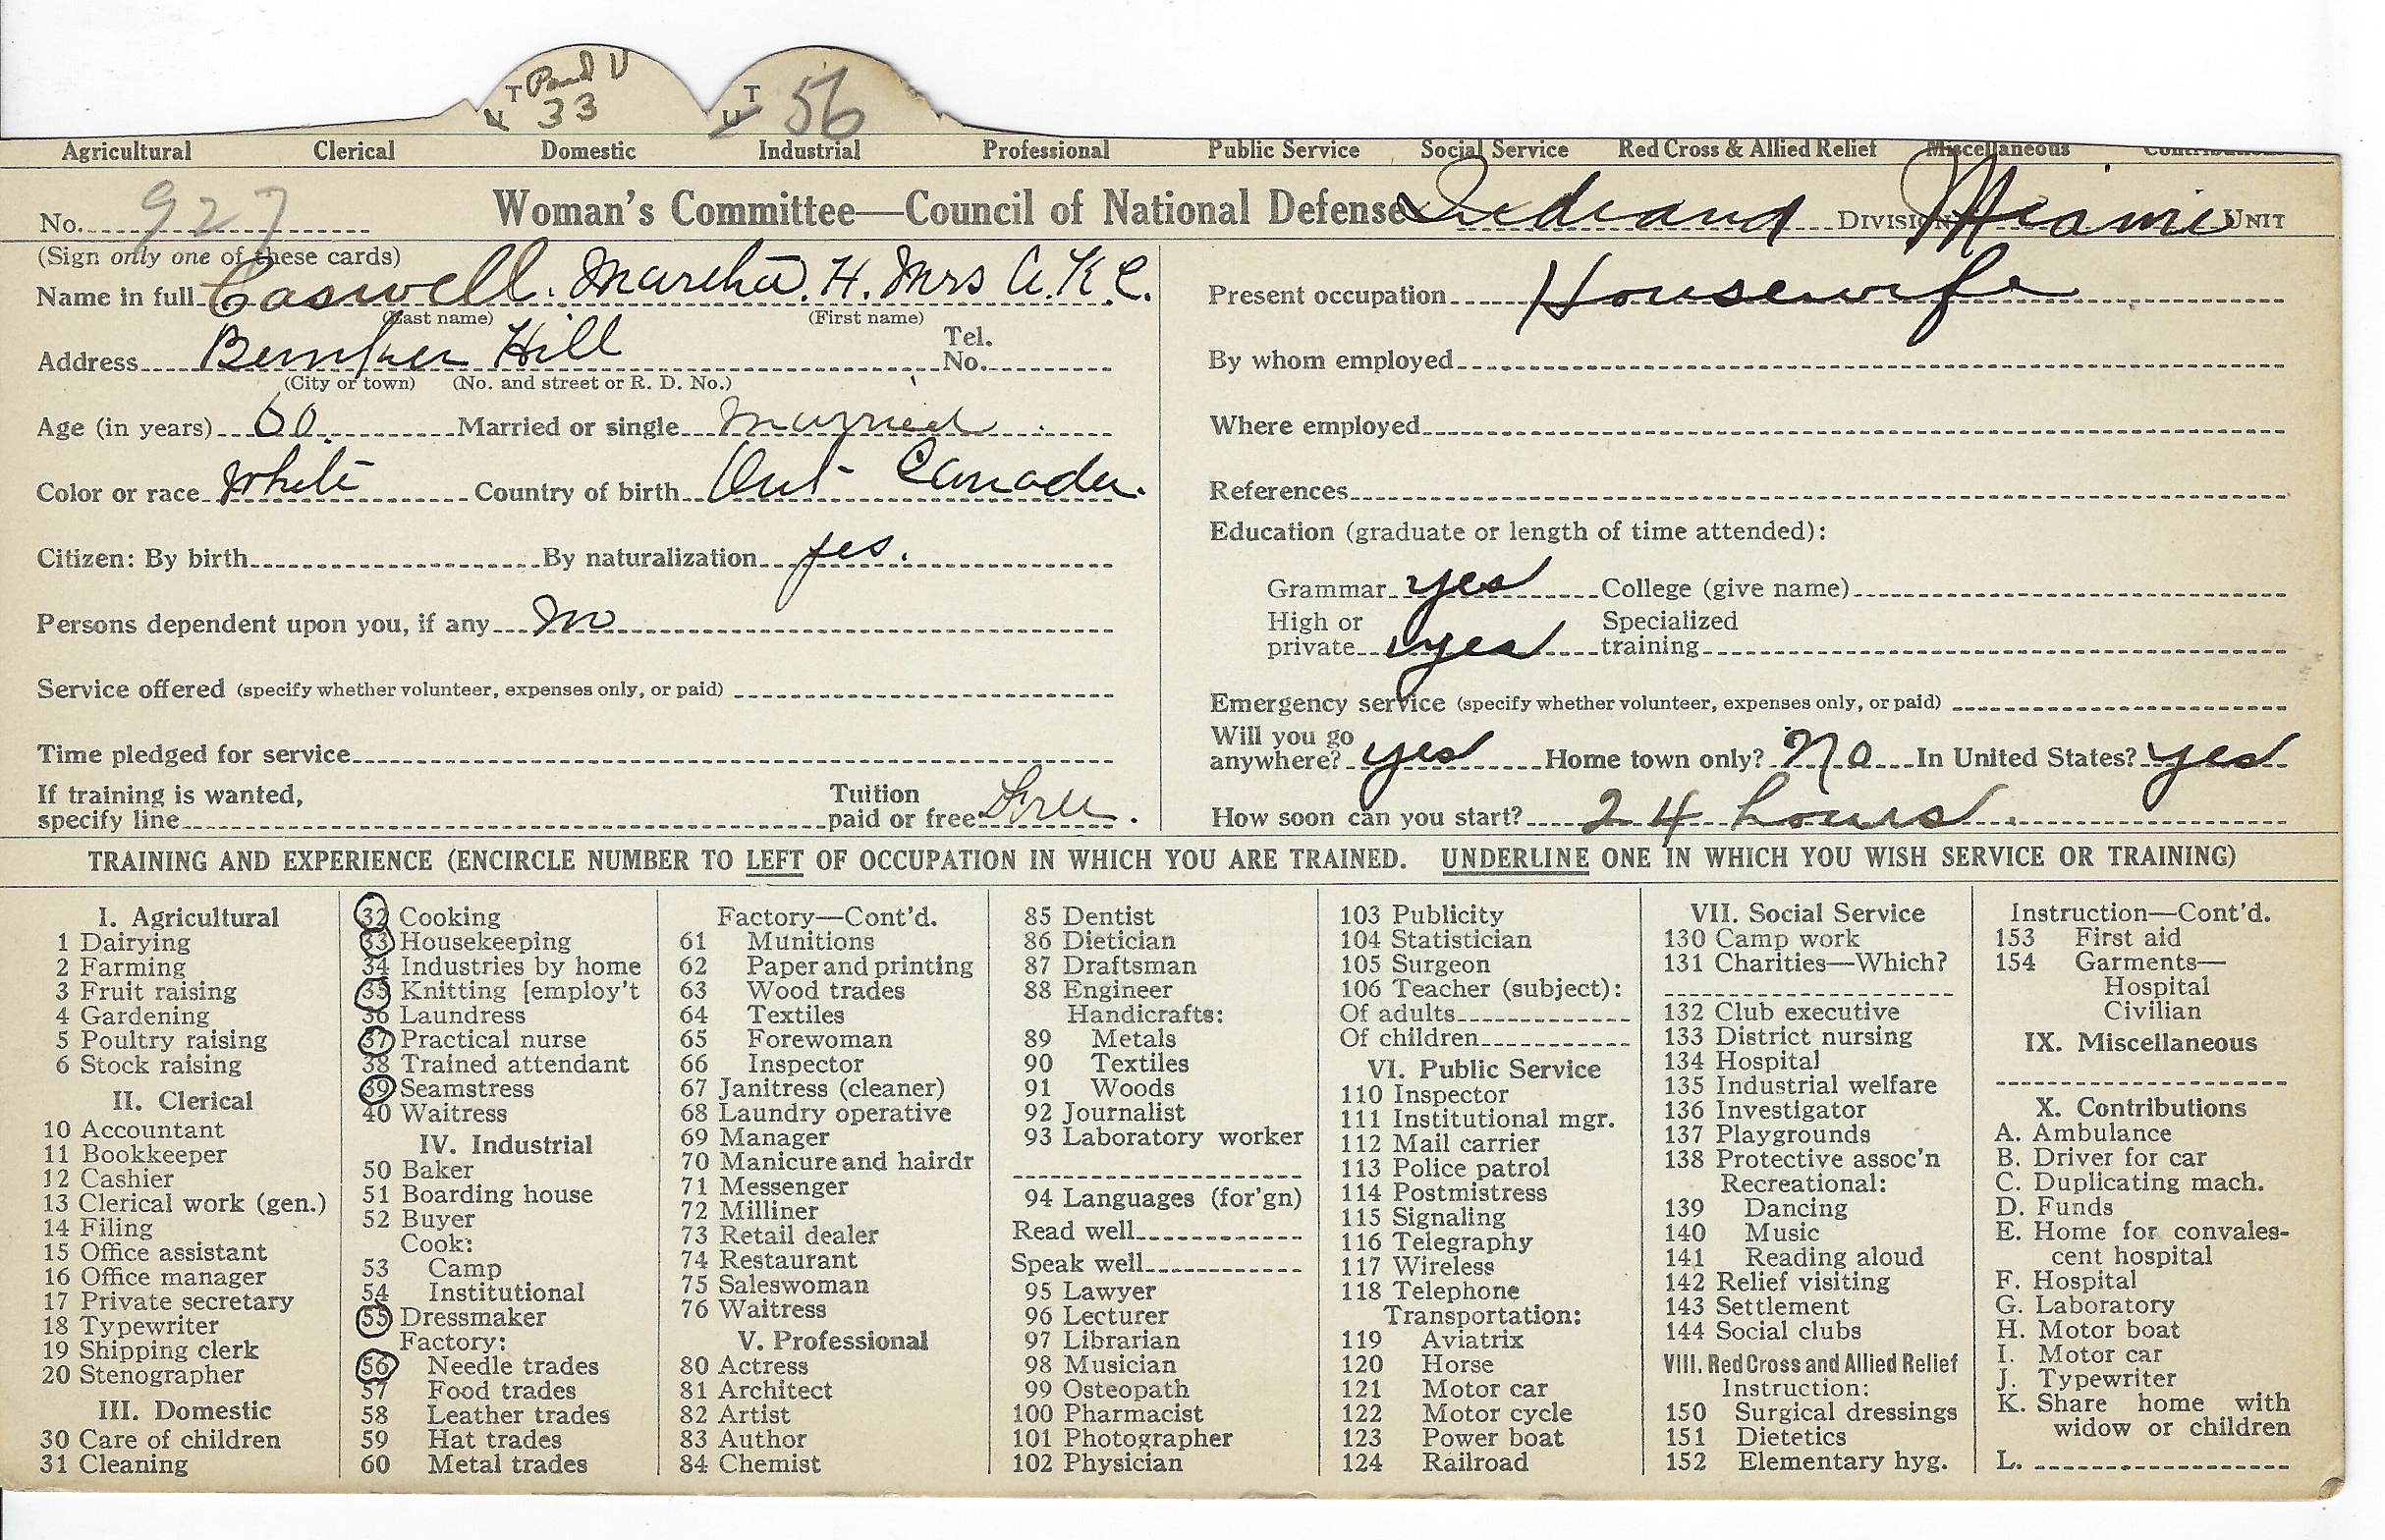 T Paid V
N 33
T
U 56
Agricultural Clerical Domestic Industrial Professional Public Service Social Service Red Cross & Allied Relief Miscellaneous Contributions
No. 927 Woman's Committee—Council of National Defense Indiana DIVISION Miami UNIT
(Sign only one of these cards)
Name in full Caswell. Martha. H. Mrs A. K. C.
(Last name) (First name)
Address Bunker Hill Tel. No.
(City or town) (No. and street or R. D. No.)
Age (in years) 60. Married or single Married
Color or race White Country of birth Ont Canada.
Citizen: By birth By naturalization yes.
Persons dependent upon you, if any no
Service offered (specify whether volunteer, expenses only, or paid)
Time pledged for service
If training is wanted,
specify line Tuition
paid or free Free.
Present occupation Housewife
By whom employed
Where employed
References
Education (graduate or length of time attended):
Grammar yes College (give name)
High or
private yes Specialized
training
Emergency service (specify whether volunteer, expenses only, or paid)
Will you go
anywhere? yes Home town only? No In United States? yes
How soon can you start? 24 hours
TRAINING AND EXPERIENCE (ENCIRCLE NUMBER TO LEFT OF OCCUPATION IN WHICH YOU ARE TRAINED. UNDERLINE ONE IN WHICH YOU WISH SERVICE OR TRAINING)
I. Agricultural
1 Dairying
2 Farming
3 Fruit raising
4 Gardening
5 Poultry raising
6 Stock raising
II. Clerical
10 Accountant
11 Bookkeeper
12 Cashier
13 Clerical work (gen.)
14 Filing
15 Office assistant
16 Office manager
17 Private secretary
18 Typewriter
19 Shipping clerk
20 Stenographer
III. Domestic
30 Care of children
31 Cleaning
32 Cooking
33 Housekeeping
34 Industries by home
35 Knitting [employ't
36 Laundress
37 Practical nurse
38 Trained attendant
39 Seamstress
40 Waitress
IV. Industrial
50 Baker
51 Boarding house
52 Buyer
Cook:
53 Camp
54 Institutional
55 Dressmaker
Factory:
56 Needle trades
57 Food trades
58 Leather trades
59 Hat trades
60 Metal trades
Factory—Cont'd.
61 Munitions
62 Paper and printing
63 Wood trades
64 Textiles
65 Forewoman
66 Inspector
67 Janitress (cleaner)
68 Laundry operative
69 Manager
70 Manicure and hairdr
71 Messenger
72 Milliner
73 Retail dealer
74 Restaurant
75 Saleswoman
76 Waitress
V. Professional
80 Actress
81 Architect
82 Artist
83 Author
84 Chemist
85 Dentist
86 Dietician
87 Draftsman
88 Engineer
Handicrafts:
89 Metals
90 Textiles
91 Woods
92 Journalist
93 Laboratory worker
94 Languages (for'gn)
Read well
Speak well
95 Lawyer
96 Lecturer
97 Librarian
98 Musician
99 Osteopath
100 Pharmacist
101 Photographer
102 Physician
103 Publicity
104 Statistician
105 Surgeon
106 Teacher (subject):
Of adults
Of children
VI. Public Service
110 Inspector
111 Institutional mgr.
112 Mail carrier
113 Police patrol
114 Postmistress
115 Signaling
116 Telegraphy
117 Wireless
118 Telephone
Transportation:
119 Aviatrix
120 Horse
121 Motor car
122 Motor cycle
123 Power boat
124 Railroad
VII. Social Service
130 Camp work
131 Charities—Which?
132 Club executive
133 District nursing
134 Hospital
135 Industrial welfare
136 Investigator
137 Playgrounds
138 Protective assoc'n
Recreational:
139 Dancing
140 Music
141 Reading aloud
142 Relief visiting
143 Settlement
144 Social clubs
VIII. Red Cross and Allied Relief
Instruction:
150 Surgical dressings
151 Dietetics
152 Elementary hyg.
Instruction—Cont'd.
153 First aid
154 Garments—
Hospital
Civilian
IX. Miscellaneous
X. Contributions
A. Ambulance
B. Driver for car
C. Duplicating mach.
D. Funds
E. Home for convales-
cent hospital
F. Hospital
G. Laboratory
H. Motor boat
I. Motor car
J. Typewriter
K. Share home with
widow or children
L.